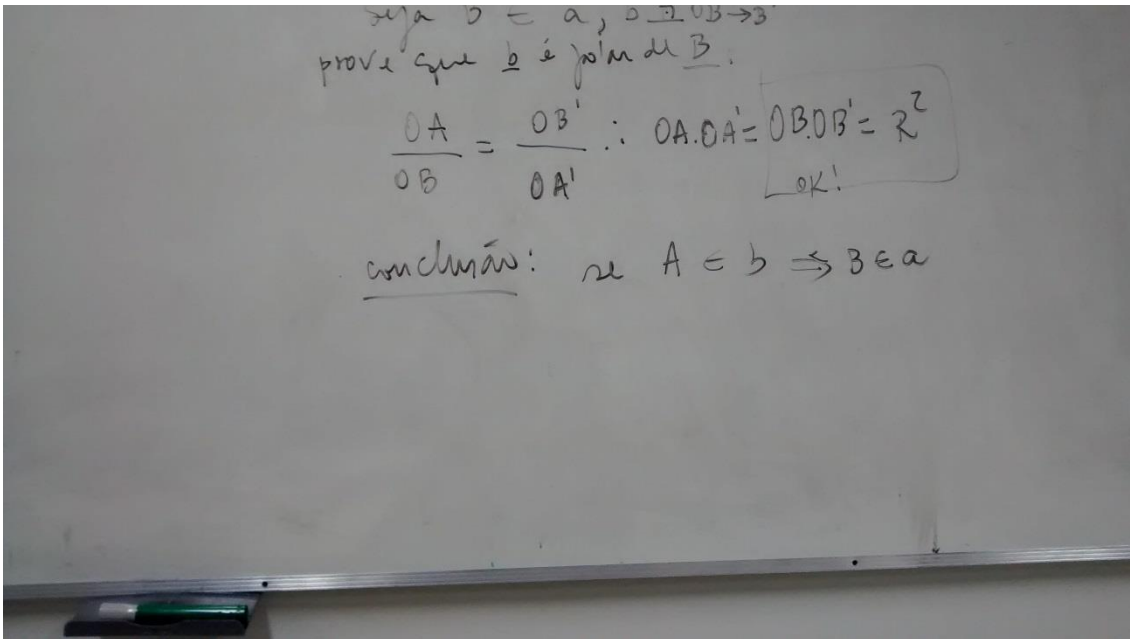 seja B ∈ a, b ⊥ OB → B'
prove que b é polar de B.
OA/OB = OB'/OA' ∴ OA.OA' = OB.OB' = R²
OK!
conclusão: se A ∈ b ⇆ B ∈ a